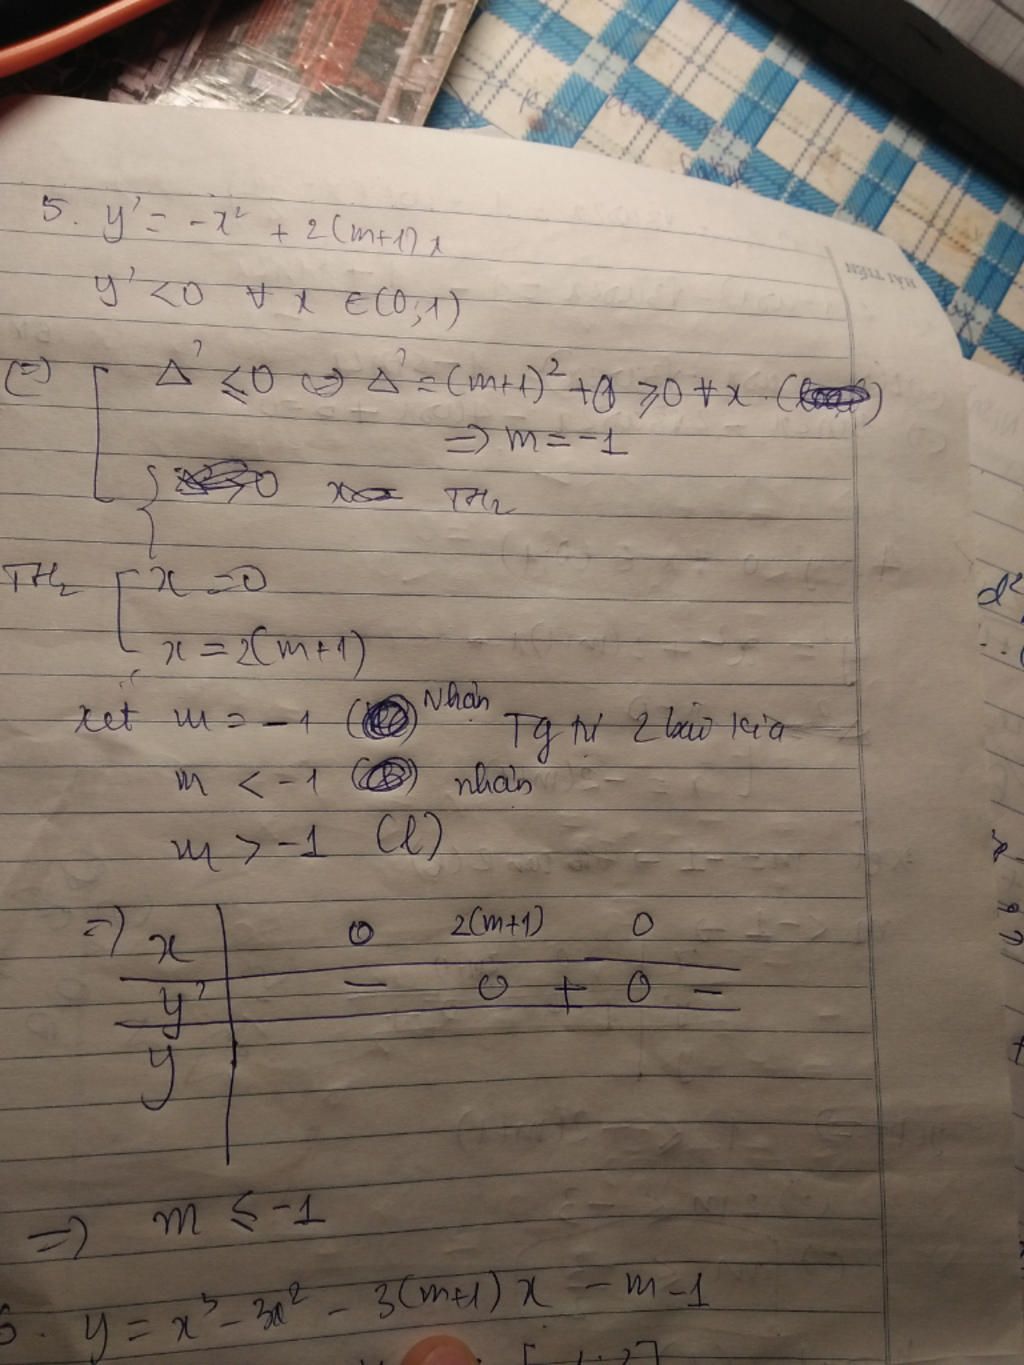 5. y' = -x² + 2(m+1)x
y' < 0 ∀ x ∈ (0;1)
(=) Δ' ≤ 0 (=) Δ' = (m+1)² + 0 ≥ 0 ∀ x.
=> m = -1
0 TH₂
TH₂ x = 0
x = 2(m+1)
xét m = -1 Nhận Tg tự 2 bài kia
m < -1 nhận
m > -1 (l)
=) x 0 2(m+1) 0
y' - 0 + 0 -
y
=> m ≤ -1
6. y = x³ - 3x² - 3(m+1)x - m - 1